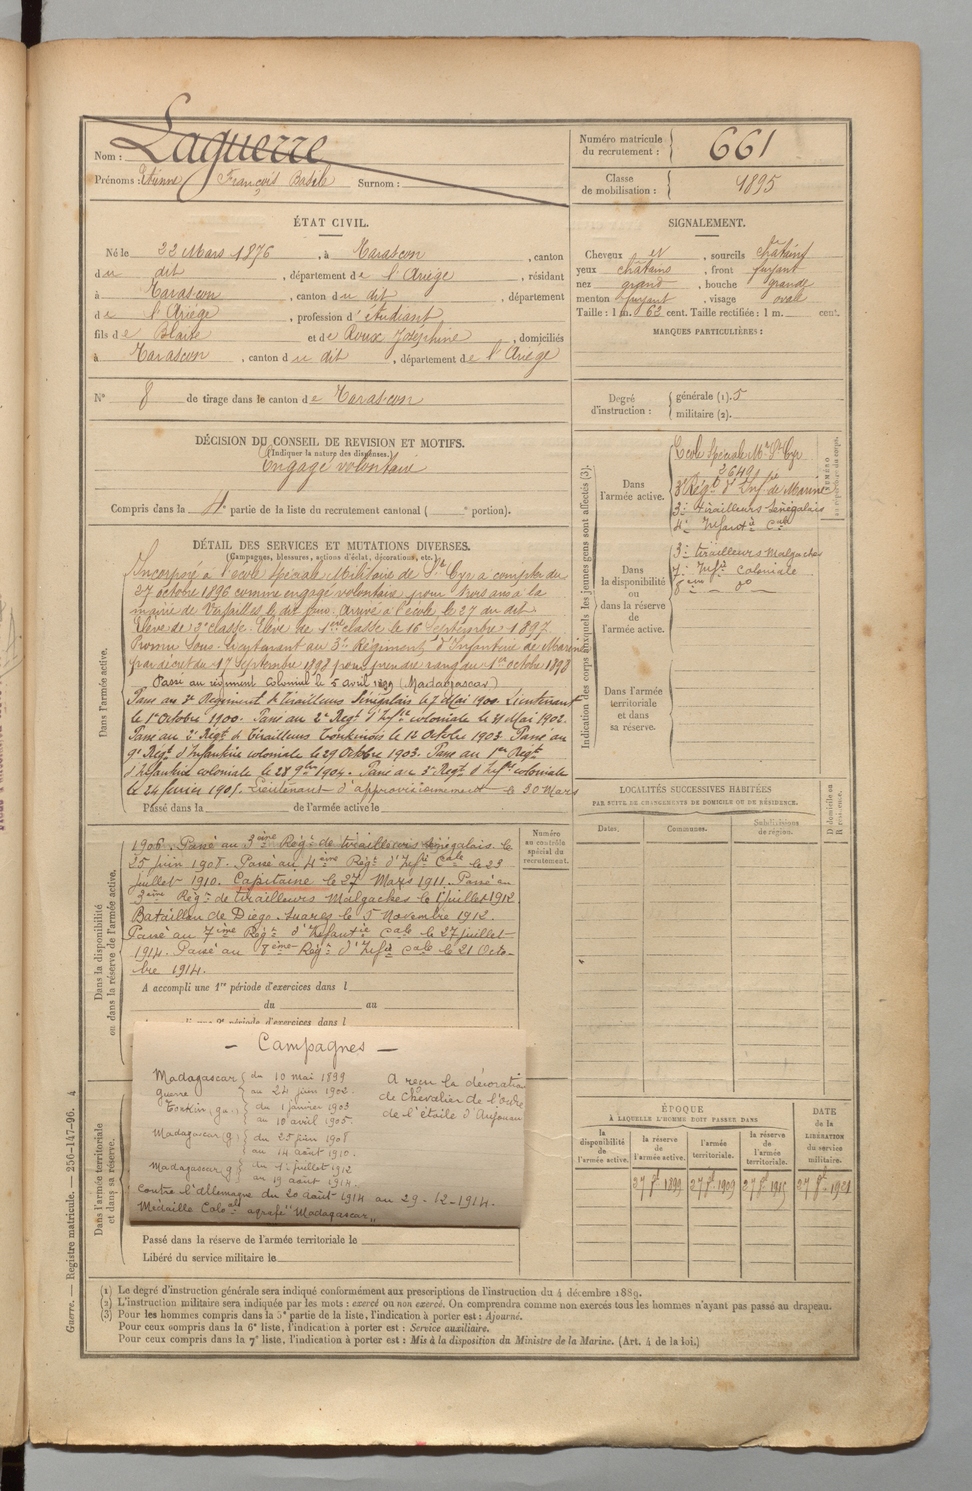 Nom : Laguerre
Prénoms : Etienne François Basile Surnom :
Numéro matricule du recrutement : 661
Classe de mobilisation : 1895
ÉTAT CIVIL.
Né le 22 Mars 1876, à Tarascon, canton
du dit, département de l'Ariège, résidant
à Tarascon, canton du dit, département
de l'Ariège, profession d'étudiant
fils de Blaise et de Roux Joséphine, domiciliés
à Tarascon, canton du dit, département de l'Ariège
N° 8 de tirage dans le canton de Tarascon
SIGNALEMENT.
Cheveux et, sourcils châtains
yeux châtains, front fuyant
nez grand, bouche grande
menton fuyant, visage ovale
Taille : 1 m. 62 cent. Taille rectifiée : 1 m. cent.
MARQUES PARTICULIÈRES :
Degré d'instruction : générale (1). 5
militaire (2).
DÉCISION DU CONSEIL DE REVISION ET MOTIFS.
(Indiquer la nature des dispenses.)
Engagé volontaire
Compris dans la 4e partie de la liste du recrutement cantonal ( e portion).
DÉTAIL DES SERVICES ET MUTATIONS DIVERSES.
(Campagnes, blessures, actions d'éclat, décorations, etc.)
Dans l'armée active.
Incorporé à l'école Spéciale Militaire de St Cyr à compter du
27 octobre 1896 comme engagé volontaire pour trois ans à la
mairie de Versailles le dit jour. Arrivé à l'école le 27 du dit.
Elève de 2e classe. Elève de 1ere classe le 16 Septembre 1897
Promu Sous-Lieutenant au 3e Régiment d'Infanterie de Marine
par décret du 17 Septembre 1898 pour prendre rang du 1er octobre 1898
Passé au régiment colonial le 5 avril 1899 (Madagascar)
Passé au 2e Régiment de Tirailleurs Sénégalais le 7 Mai 1900. Lieutenant
le 1er Octobre 1900. Passé au 2e Regt d'Infie coloniale le 31 Mai 1902.
Passé au 2e Régt de Tirailleurs Tonkinois le 12 Octobre 1903. Passé au
9e Régt d'Infanterie coloniale le 29 Octobre 1903. Passé au 1er Régt
d'Infanterie coloniale le 28 9bre 1904. Passé au 5e Regt d'Infie coloniale
le 24 février 1905. Lieutenant d'approvisionnement le 30 Mars
Passé dans la de l'armée active le
Dans la disponibilité ou dans la réserve de l'armée active.
1906. Passé au 3ème Régt de tirailleurs Sénégalais le
25 juin 1908. Passé au 4ème Régt d'Infie Cale le 23
juillet 1910. Capitaine le 27 Mars 1911. Passé au
3ème Régt de tirailleurs Malgaches le 1er juillet 1912
Bataillon de Diégo-Suarez le 5 Novembre 1912.
Passé au 7ème Régt d'Infantie Cale le 27 juillet
1914. Passé au 8ème Régt d'Infie Cale le 21 Octo-
bre 1914.
A accompli une 1re période d'exercices dans l
du au
Numéro au contrôle spécial du recrutement.
— Campagnes —
Madagascar guerre du 10 mai 1899
au 24 juin 1902.
Tonkin (ga.) du 1 janvier 1903
au 10 avril 1905.
Madagascar (g) du 25 juin 1908
au 14 août 1910.
Madagascar g du 1er juillet 1912
au 19 août 1914.
Contre l'Allemagne du 20 août 1914 au 29-12-1914.
Médaille Coloale agrafe "Madagascar"
A reçu la décoration
de Chevalier de l'ordre
de l'étoile d'Anjouan
Dans l'armée territoriale et dans sa réserve.
Passé dans la réserve de l'armée territoriale le
Libéré du service militaire le
Indication des corps auxquels les jeunes gens sont affectés (3).
Dans l'armée active.
Ecole Spéciale Mre St Cyr
2649
3e Régt d'Inf. de Marine
3e tirailleurs Sénégalais
4e Infantie Cale
Dans la disponibilité ou dans la réserve de l'armée active.
3e tirailleurs Malgaches
7e Infie Coloniale
8ème — do —
Dans l'armée territoriale et dans sa réserve.
LOCALITÉS SUCCESSIVES HABITÉES
PAR SUITE DE CHANGEMENTS DE DOMICILE OU DE RÉSIDENCE.
Dates. Communes. Subdivisions de région. D domicile ou R résidence.
ÉPOQUE
À LAQUELLE L'HOMME DOIT PASSER DANS
la disponibilité de l'armée active.
la réserve de l'armée active.
l'armée territoriale.
la réserve de l'armée territoriale.
DATE de la LIBÉRATION du service militaire.
(1) Le degré d'instruction générale sera indiqué conformément aux prescriptions de l'instruction du 4 décembre 1889.
(2) L'instruction militaire sera indiquée par les mots : exercé ou non exercé. On comprendra comme non exercés tous les hommes n'ayant pas passé au drapeau.
(3) Pour les hommes compris dans la 5e partie de la liste, l'indication à porter est : Ajourné.
Pour ceux compris dans la 6e liste, l'indication à porter est : Service auxiliaire.
Pour ceux compris dans la 7e liste, l'indication à porter est : Mis à la disposition du Ministre de la Marine. (Art. 4 de la loi.)
Guerre. — Registre matricule. — 256-147-96. 4